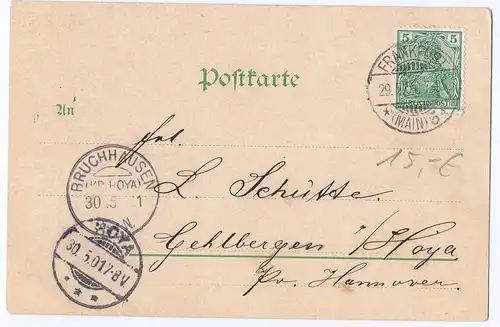 5 5
FRANKFUR
29.
*(MAIN)
Postkarte
An
Frl.
L. Schütte
Gehlbergen i/Hoya
Pr. Hannover.
15,-€
BRUCHHAUSEN
(KR. HOYA)
30 5 1
N
HOYA
30.5.01.7-8V
* *